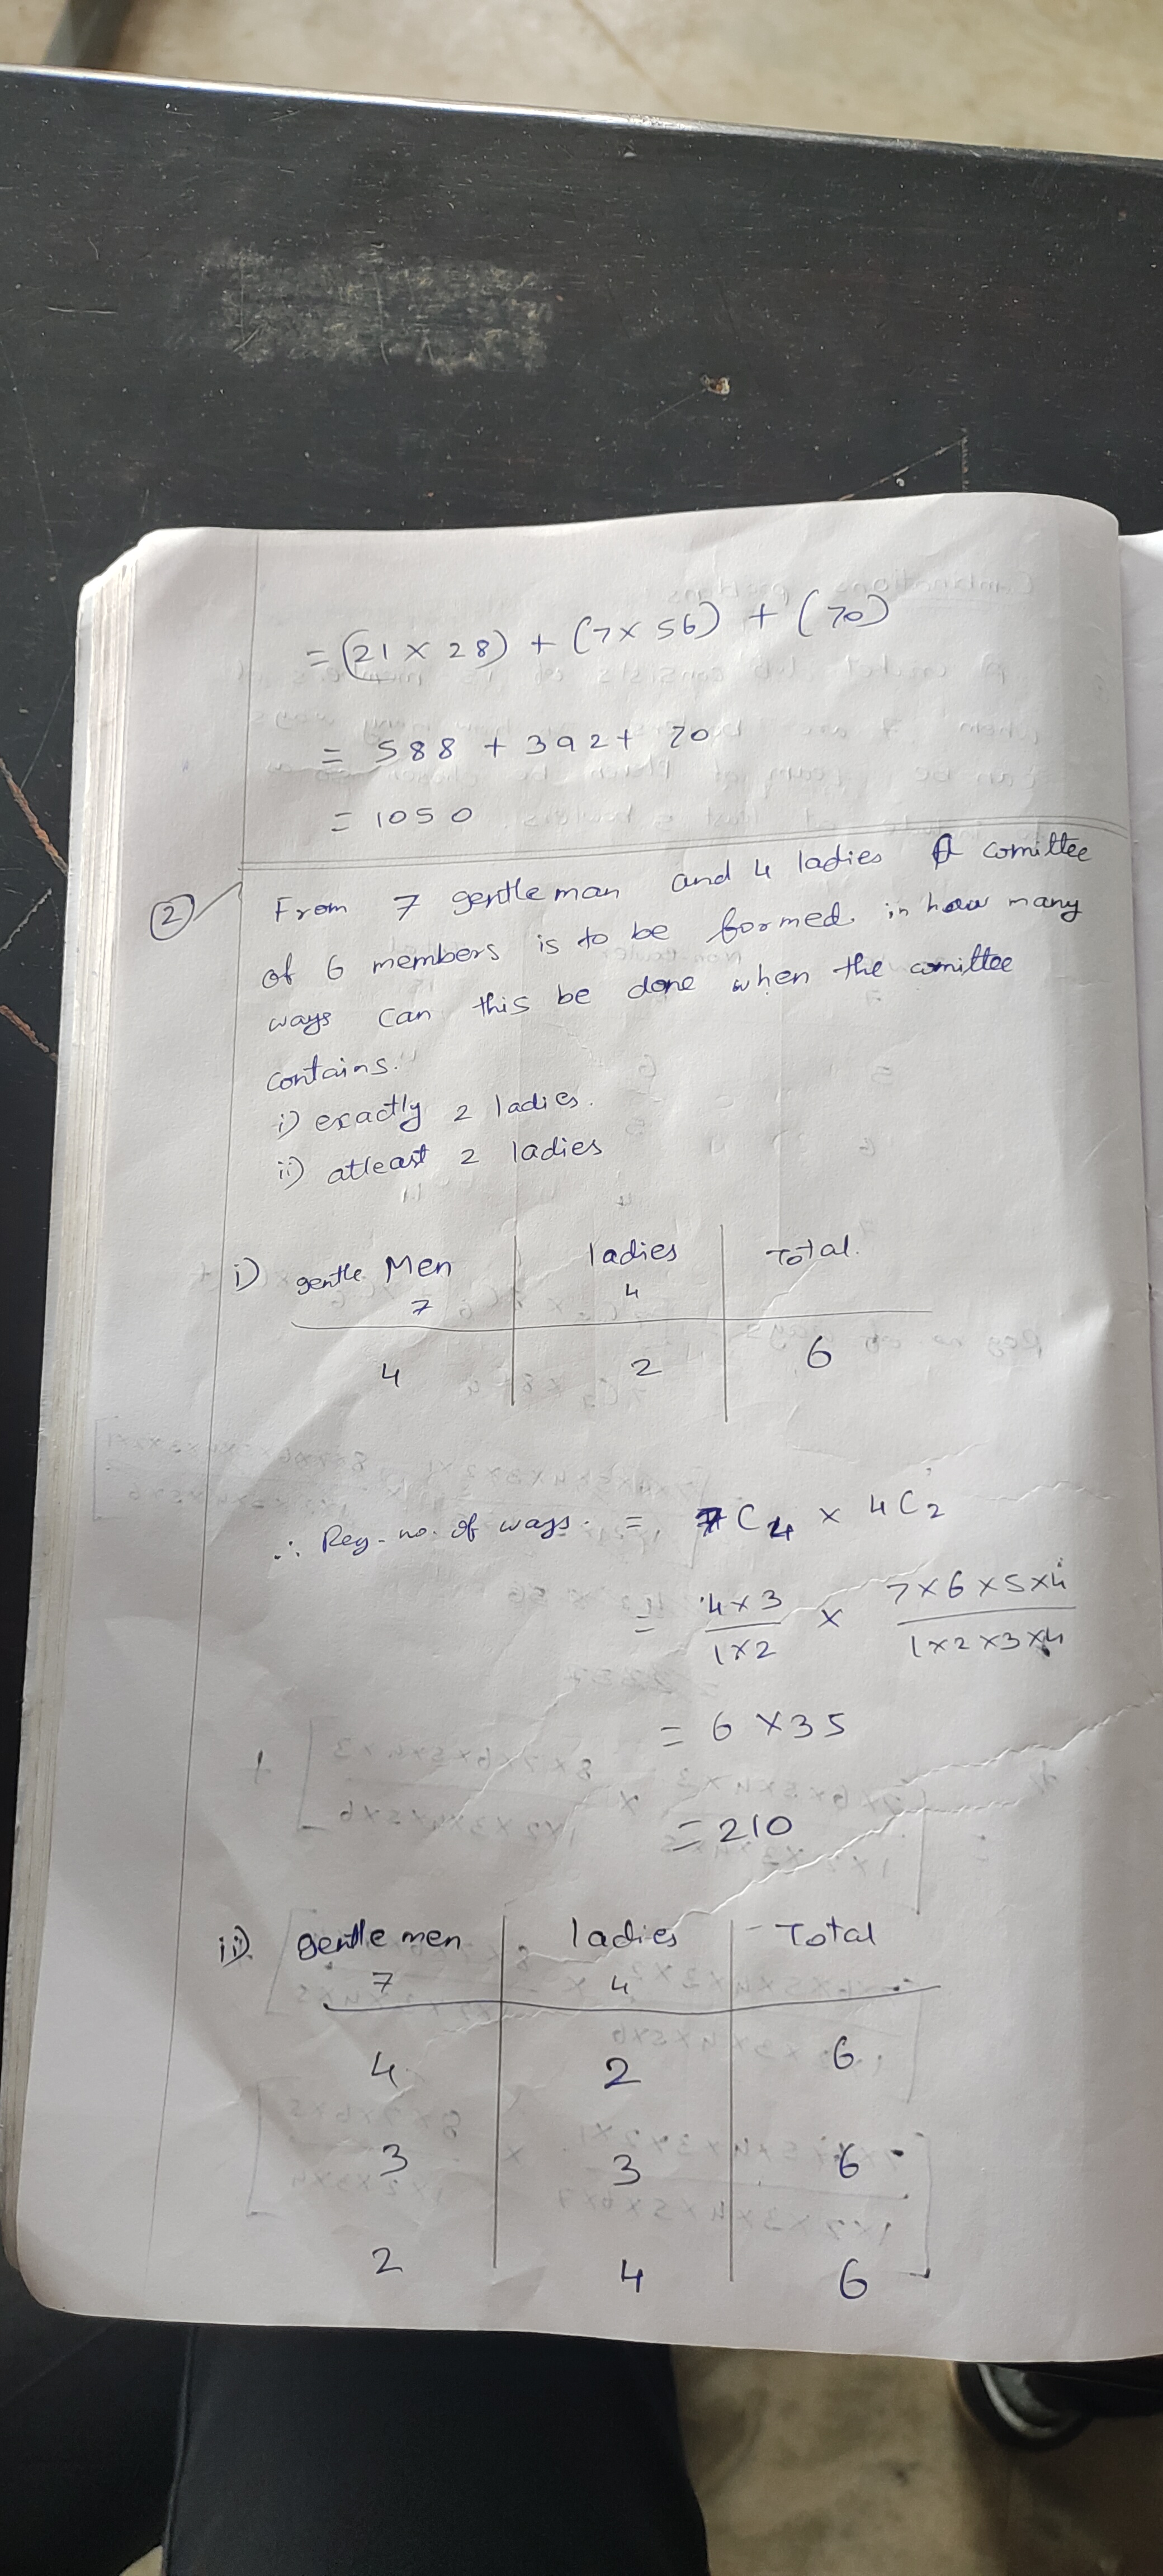 = (21 × 28) + (7 × 56) + (70)
= 588 + 392 + 70
= 1050
② From 7 gentleman and 4 ladies A comittee
of 6 members is to be formed. in how many
ways can this be done when the comittee
contains.
i) exactly 2 ladies.
ii) atleast 2 ladies
i) gentle Men | ladies | Total.
7 | 4
4 | 2 | 6
∴ Req. no. of ways. = 7C4 × 4C2
= 4×3/1×2 × 7×6×5×4/1×2×3×4
= 6 × 35
= 210
ii) gentle men | ladies | Total
7 | 4
4 | 2 | 6
3 | 3 | 6
2 | 4 | 6